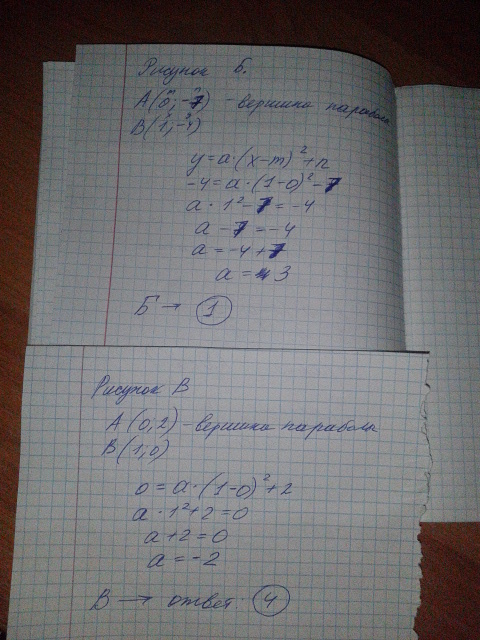 Рисунок Б.
A(0; -7) - вершина парабол
B(1; -4)
y = a·(x-m)²+n
-4 = a·(1-0)²-7
a·1²-7 = -4
a-7 = -4
a = -4+7
a = 3
Б → 1
Рисунок В
A(0; 2) - вершина параболы
B(1; 0)
0 = a·(1-0)²+2
a·1²+2 = 0
a+2 = 0
a = -2
В → ответ: 4